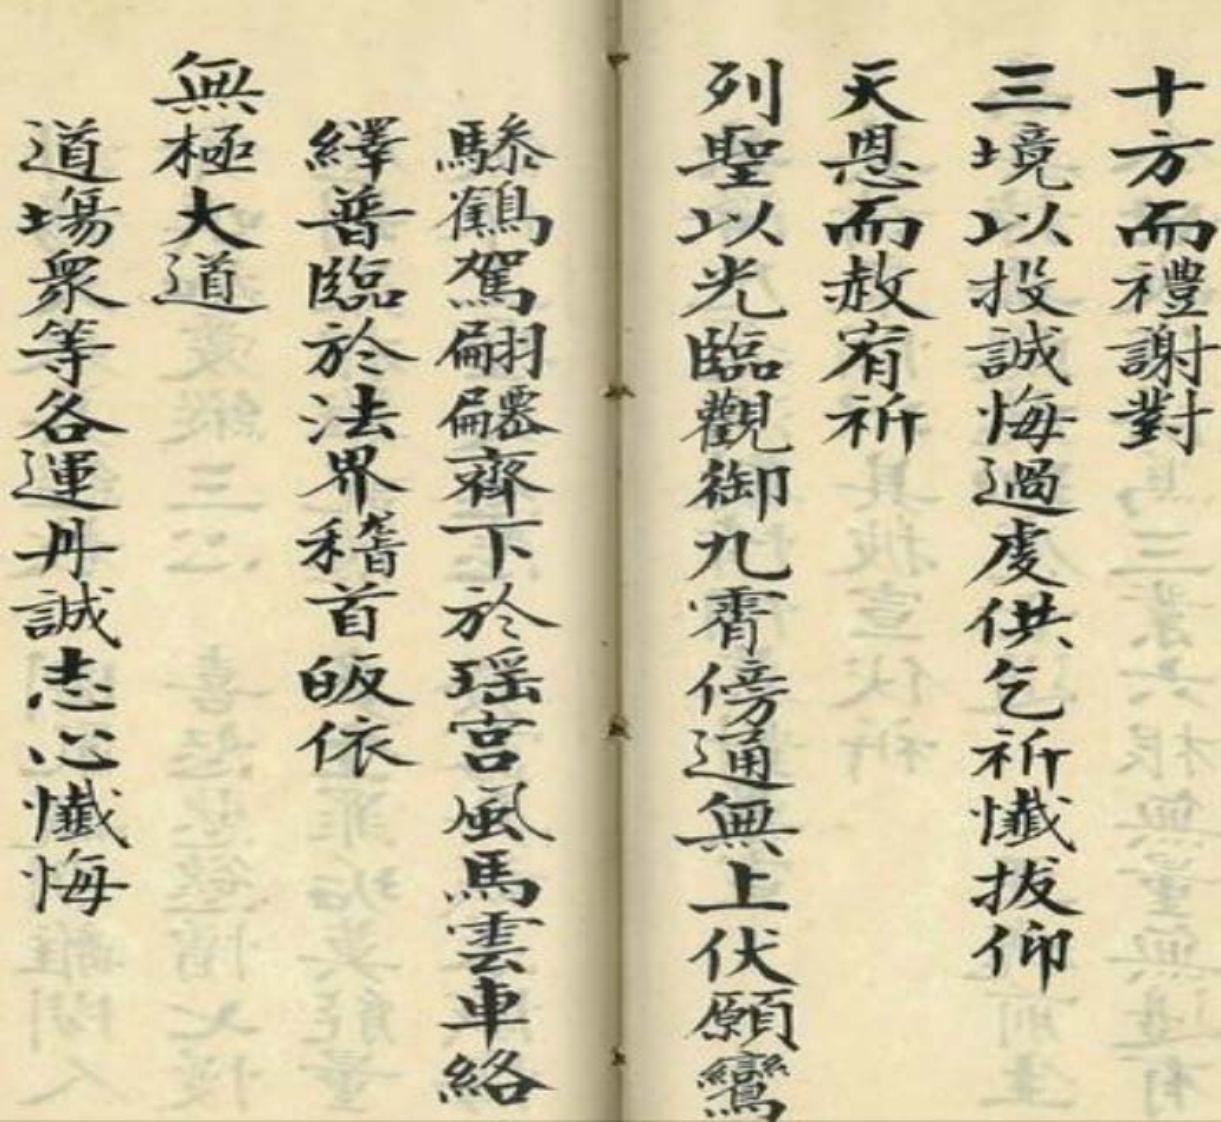 十方而禮謝對
三境以投誠悔過虔供乞祈懺拔仰
天恩而赦宥祈
列聖以光臨觀御九霄傍通無上伏願鸞
驂鶴駕翩翩齊下於瑶宮風馬雲車絡
繹普臨於法界稽首皈依
無極大道
道場衆等各運丹誠志心懺悔